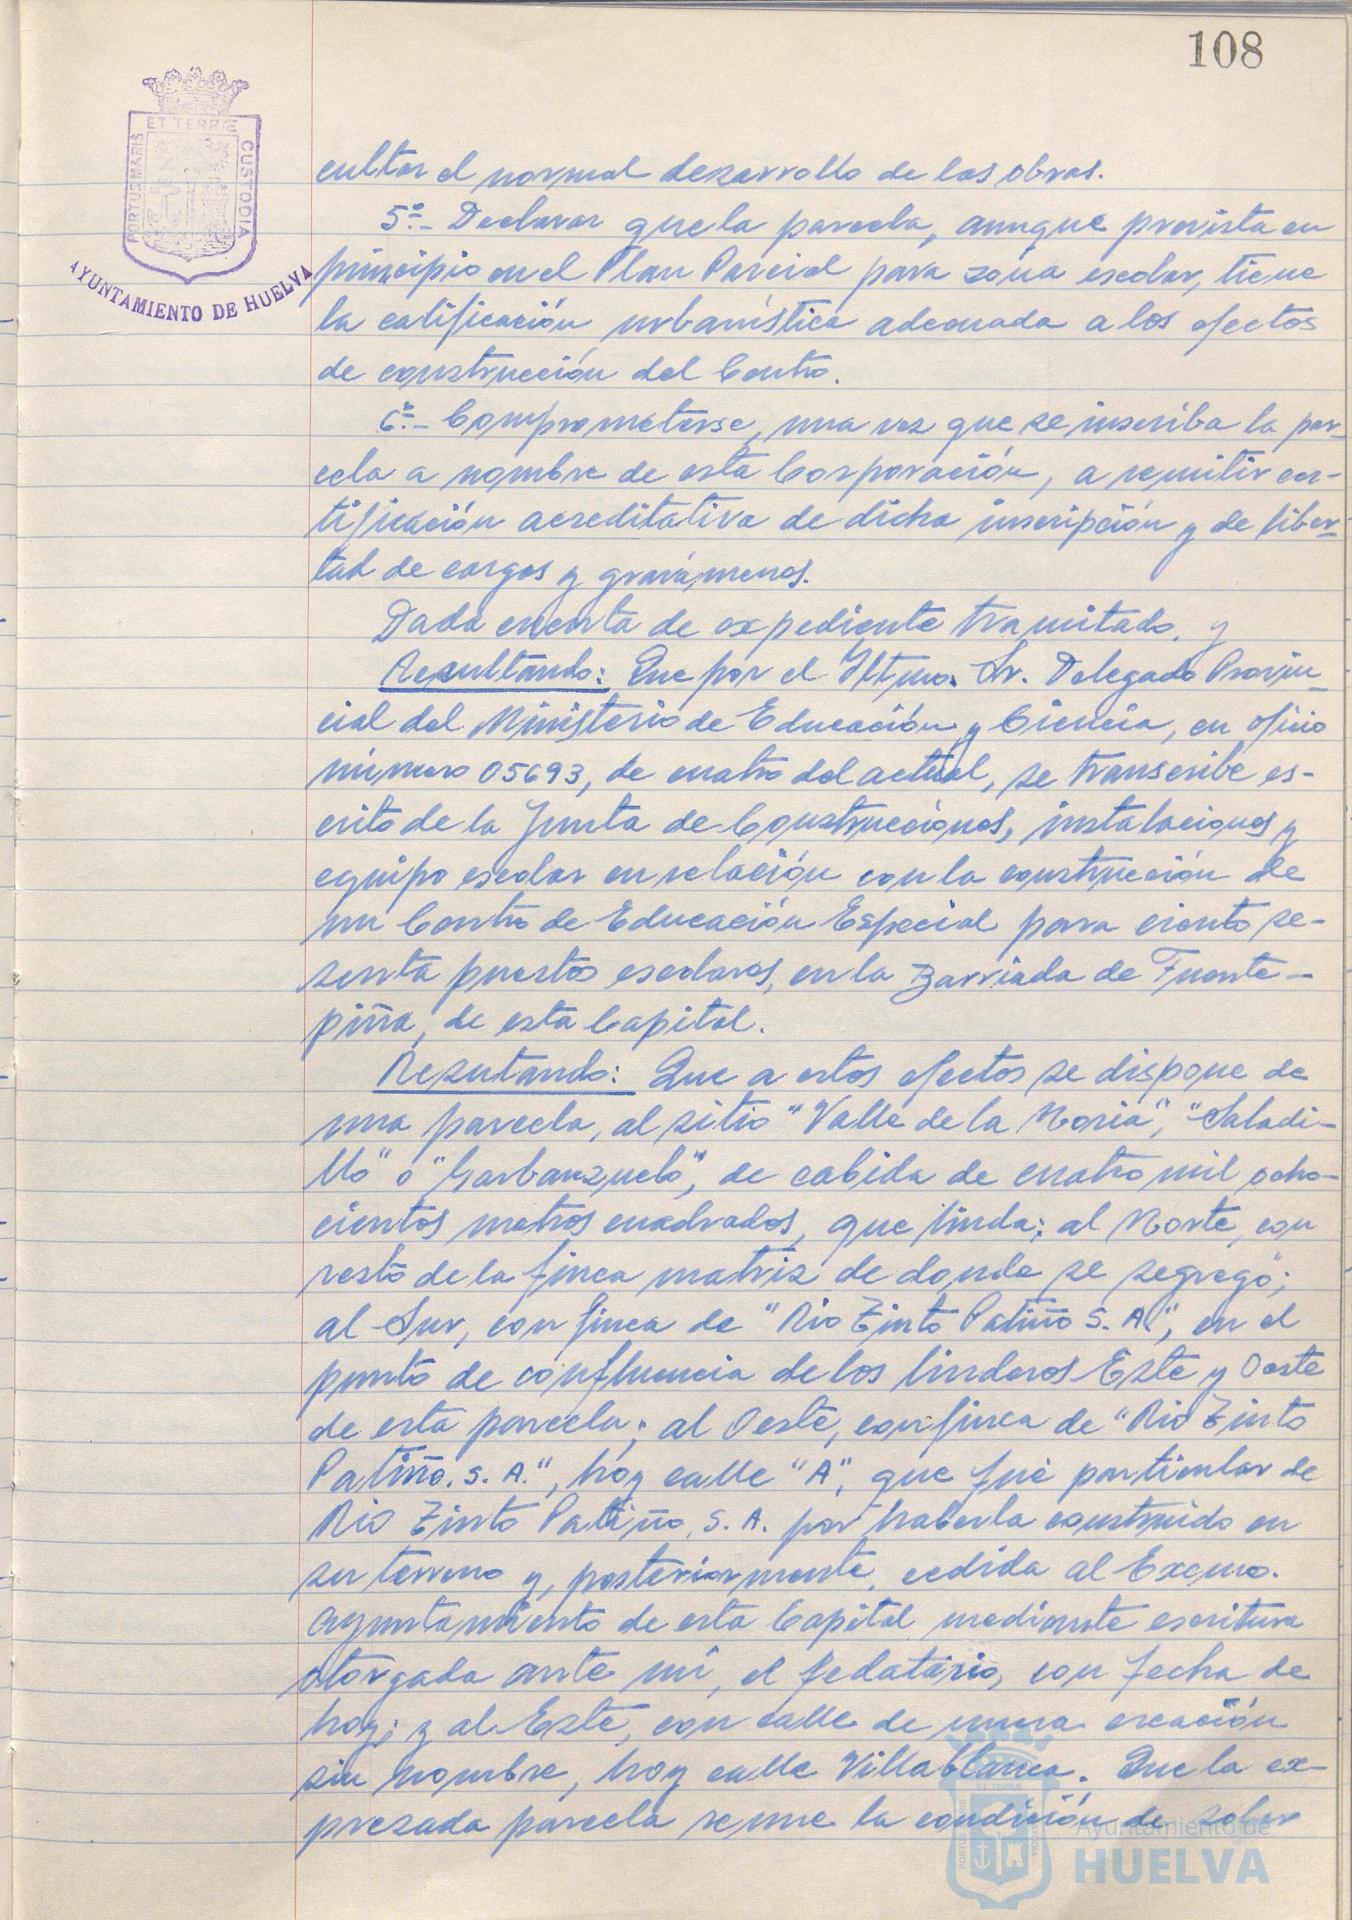 108
ET TERRÆ
PORTUS MARIS
CUSTODIA
AYUNTAMIENTO DE HUELVA
cultar el normal desarrollo de las obras.
5º.- Declarar que la parcela, aunque prevista en
principio en el Plan Parcial para zona escolar, tiene
la calificación urbanística adecuada a los efectos
de construcción del Centro.
6º.- Comprometerse, una vez que se inscriba la par-
cela a nombre de esta Corporación, a remitir cer-
tificación acreditativa de dicha inscripción y de liber-
tad de cargas y gravámenes.
Dada cuenta de expediente tramitado, y
Resultando: Que por el Iltmo. Sr. Delegado Provin-
cial del Ministerio de Educación y Ciencia, en oficio
número 05693, de cuatro del actual, se transcribe es-
crito de la Junta de Construcciones, instalaciones y
equipo escolar en relación con la construcción de
un Centro de Educación Especial para ciento se-
senta puestos escolares, en la Barriada de Fuente-
piña, de esta Capital.
Resutando: Que a estos efectos se dispone de
una parcela, al sitio "Valle de la Noria", "Saladi-
llo" o "Garbanzuelo", de cabida de cuatro mil ocho-
cientos metros cuadrados, que linda; al Norte, con
resto de la finca matriz de donde se segregó;
al Sur, con finca de "Rio Tinto Patiño S. A.", en el
punto de confluencia de los linderos Este y Oeste
de esta parcela; al Oeste, con finca de "Rio Tinto
Patiño. S. A.", hoy calle "A", que fué particular de
Rio Tinto Patiño, S. A. por haberla construido en
su terreno y, posteriormente, cedida al Excmo.
Ayuntamiento de esta Capital mediante escritura
otorgada ante mí, el fedatario, con fecha de
hoy; y al Este, con calle de nueva creación
sin nombre, hoy calle Villablanca. Que la ex-
presada parcela reune la condición de solar
Ayuntamiento de
HUELVA